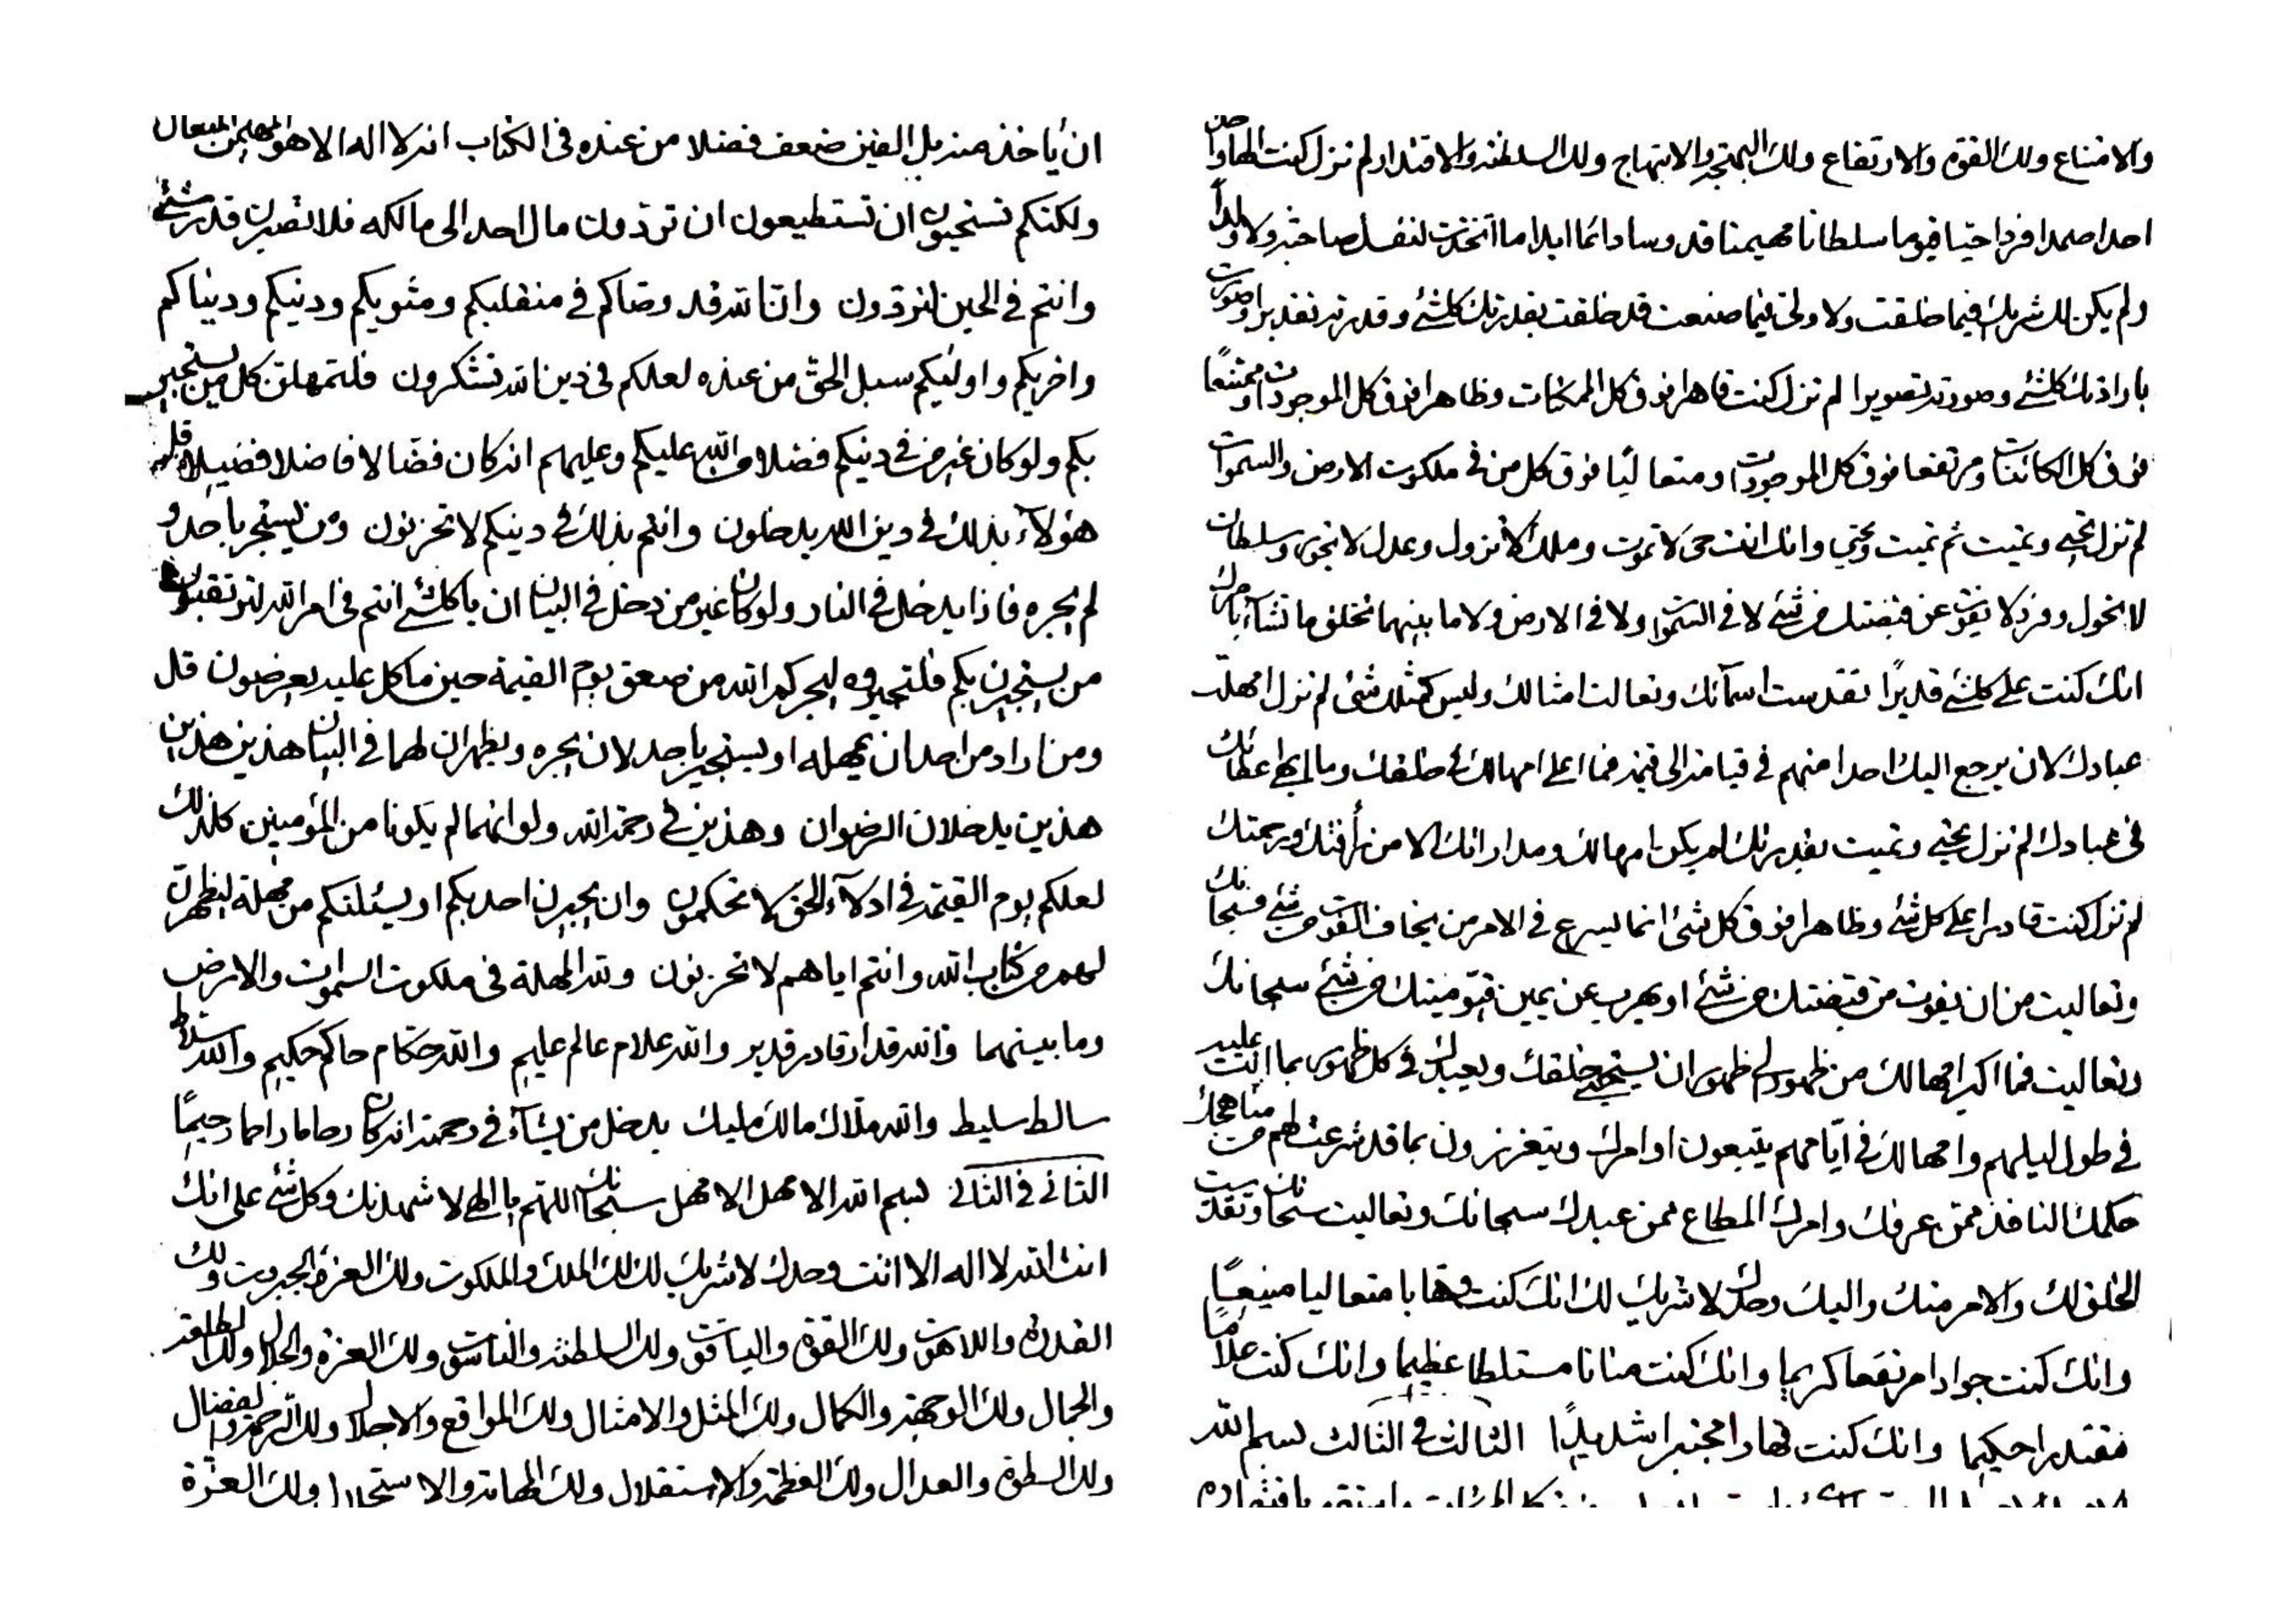 ان ياخذ منه بل الفين ضعف فضلا من عنده فى الكتاب انه لا اله الا هو المهيمن المتعال
ولكنكم تستحيون ان تستطيعون ان تردون مال احد الى مالكه فلا تصبرن قدر شئ
وانتم فى الحين لتردون وانا لله قد وصاكم فى منقلبكم ومثويكم ودنيكم ودنياكم
واخريكم واوليكم سبل الحق من عنده لعلكم فى دين الله تشكرون فلتمهلن كل من يستجير
بكم ولو كان غير من فى دينكم فضلا من الله عليكم وعليهم انه كان فضالا فاضلا فضيلا قل
هؤلاء بذلك فى دين الله يدخلون وانتم بذلك فى دينكم لا تحزنون ومن يستجير باحد و
لم يجره فاذا يدخل فى النار ولو كان غير من دخل فى البيان ان يا كلشئ انتم فى امر الله لتوقنون
من يستجيرن بكم فلتجيروه ليجركم الله من صعق يوم القيمة حين ما كل عليه يعرضون قل
ومن اراد من احد ان يمهله او يستجير باحد لان يجره ويظهران لهما فى البيان هذين هذين
هذين يدخلان الرضوان وهذين فى رحمة الله ولو انهما لم يكونا من المؤمنين كذلك
لعلكم يوم القيمة فى ادلاء الحق لا تحكمون وان يجيرن احد بكم او يسئلنكم من مهلة ليظهرن
لهم من كتاب الله وانتم اياهم لا تحزنون ولله المهلة فى ملكوت السموات والارض
وما بينهما والله قدار قادر قدير والله علام عالم عليم والله حكام حاكم حكيم والله سلاط
سالط سليط والله ملاك مالك مليك يدخل من يشاء فى رحمته انه كان رحاما راحما رحيما
الثانى فى الثانى بسم الله الامهل الامهل سبحانك اللهم يا الهى لاشهدنك وكل شئ على انك
انت الله لا اله الا انت وحدك لا شريك لك لك الملك والملكوت ولك العزة والجبروت ولك
القدرة واللاهوت ولك القوة والياقوت ولك السلطنة والناسوت ولك العزة والجلال ولك الطلعة
والجمال ولك الوجهة والكمال ولك المثل والامثال ولك المواقع والاجلال ولك الرحمة والفضال
ولك السطوة والعدال ولك العظمة والاستقلال ولك المهابة والاستجلال ولك العزة
والامتناع ولك القوة والارتفاع ولك البهجة والابتهاج ولك السلطنة والاقتدار لم تزل كنت الها واحدا
احدا صمدا فردا حيا قيوما سلطانا مهيمنا قدوسا دائما ابدا ما اتخذت لنفسك صاحبة ولا ولدا
ولم يكن لك شريك فيما خلقت ولا ولى فيما صنعت قد خلقت بقدرتك كلشئ وقدرته تقديرا وصورت
بارادتك كلشئ وصورته تصويرا لم تزل كنت قاهرا فوق كل الممكنات وظاهرا فوق كل الموجودات وممتنعا
فوق كل الكائنات ومرتفعا فوق كل الموجودات ومتعاليا فوق كل من فى ملكوت الارض والسموات
لم تزل تحيى وتميت ثم تميت وتحيى وانك انت حى لا تموت وملك لا تزول وعدل لا تجور وسلطان
لا تحول وفرد لا يفوت عن قبضتك من شئ لا فى السموات ولا فى الارض ولا ما بينهما تخلق ما تشاء بامرك
انك كنت على كلشئ قديرا تقدست اسمائك وتعالت امثالك وليس كمثلك شئ لم تزل امهلت
عبادك لان يرجع اليك احدا منهم فى قيامة الى قيمة فما اعلى امهالك فى خلقك وما ابهى عطائك
فى عبادك لم تزل تحيى وتميت بقدرتك لم يكن امهالك ومداراتك الا من رأفتك ورحمتك
لم تزل كنت قادرا على كل شئ وظاهرا فوق كل شئ انما يسرع فى الامر من يخاف الفوت من شئ فسبحانك
وتعاليت من ان يفوت من قبضتك من شئ او يهرب عن يمين قيوميتك من شئ سبحانك
وتعاليت فما اكبر امهالك من ظهور الى ظهور ان يستجير خلقك ويعبدك فى كل ظهور بما انت عليه
فى طول ليلهم وامهالك فى ايامهم يتبعون اوامرك ويتعززون بما قد شرعت لهم من مناهجك
حكمك النافذ ممن عرفك وامرك المطاع ممن عبدك سبحانك وتعاليت سبحانك وتقدست
الخلق لك والامر منك واليك وحدك لا شريك لك انك كنت وهابا متعاليا منيعا
وانك كنت جوادا مرتفعا كريما وانك كنت منانا مستلطا عظيما وانك كنت علاما
مقتدرا حكيما وانك كنت قهارا مجتبرا شديدا الثالث فى الثالث بسم الله